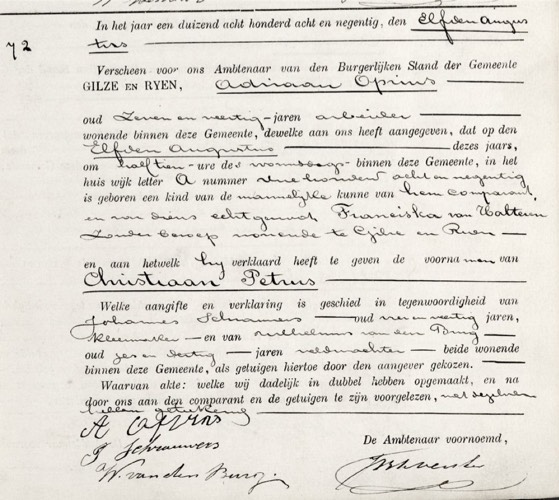 72
In het jaar een duizend acht honderd acht en negentig, den Elfden Augus
tus
Verscheen voor ons Ambtenaar van den Burgerlijken Stand der Gemeente
GILZE EN RYEN, Adriaan Opins
oud Zeven en veertig jaren arbeider
wonende binnen deze Gemeente, dewelke aan ons heeft aangegeven, dat op den
Elfden Augustus dezes jaars,
om half tien ure des voormiddags binnen deze Gemeente, in het
huis wijk letter A nummer honderd acht en negentig
is geboren een kind van de mannelijke kunne van hem comparant,
en van diens echtgenoot Franciska van
Zonder beroep wonende te Gilze en Ryen
en aan hetwelk hy verklaard heeft te geven de voornamen van
Christiaan Petrus
Welke aangifte en verklaring is geschied in tegenwoordigheid van
Johannes Schrauwers oud vier en veertig jaren,
kleermaker en van Wilhelmus van den Burg
oud zes en dertig jaren veldwachter beide wonende
binnen deze Gemeente, als getuigen hiertoe door den aangever gekozen.
Waarvan akte: welke wij dadelijk in dubbel hebben opgemaakt, en na
door ons aan den comparant en de getuigen te zijn voorgelezen, met dezelven
hebben getekend
A Opins
J Schrauwers
W. van den Burg.
De Ambtenaar voornoemd,